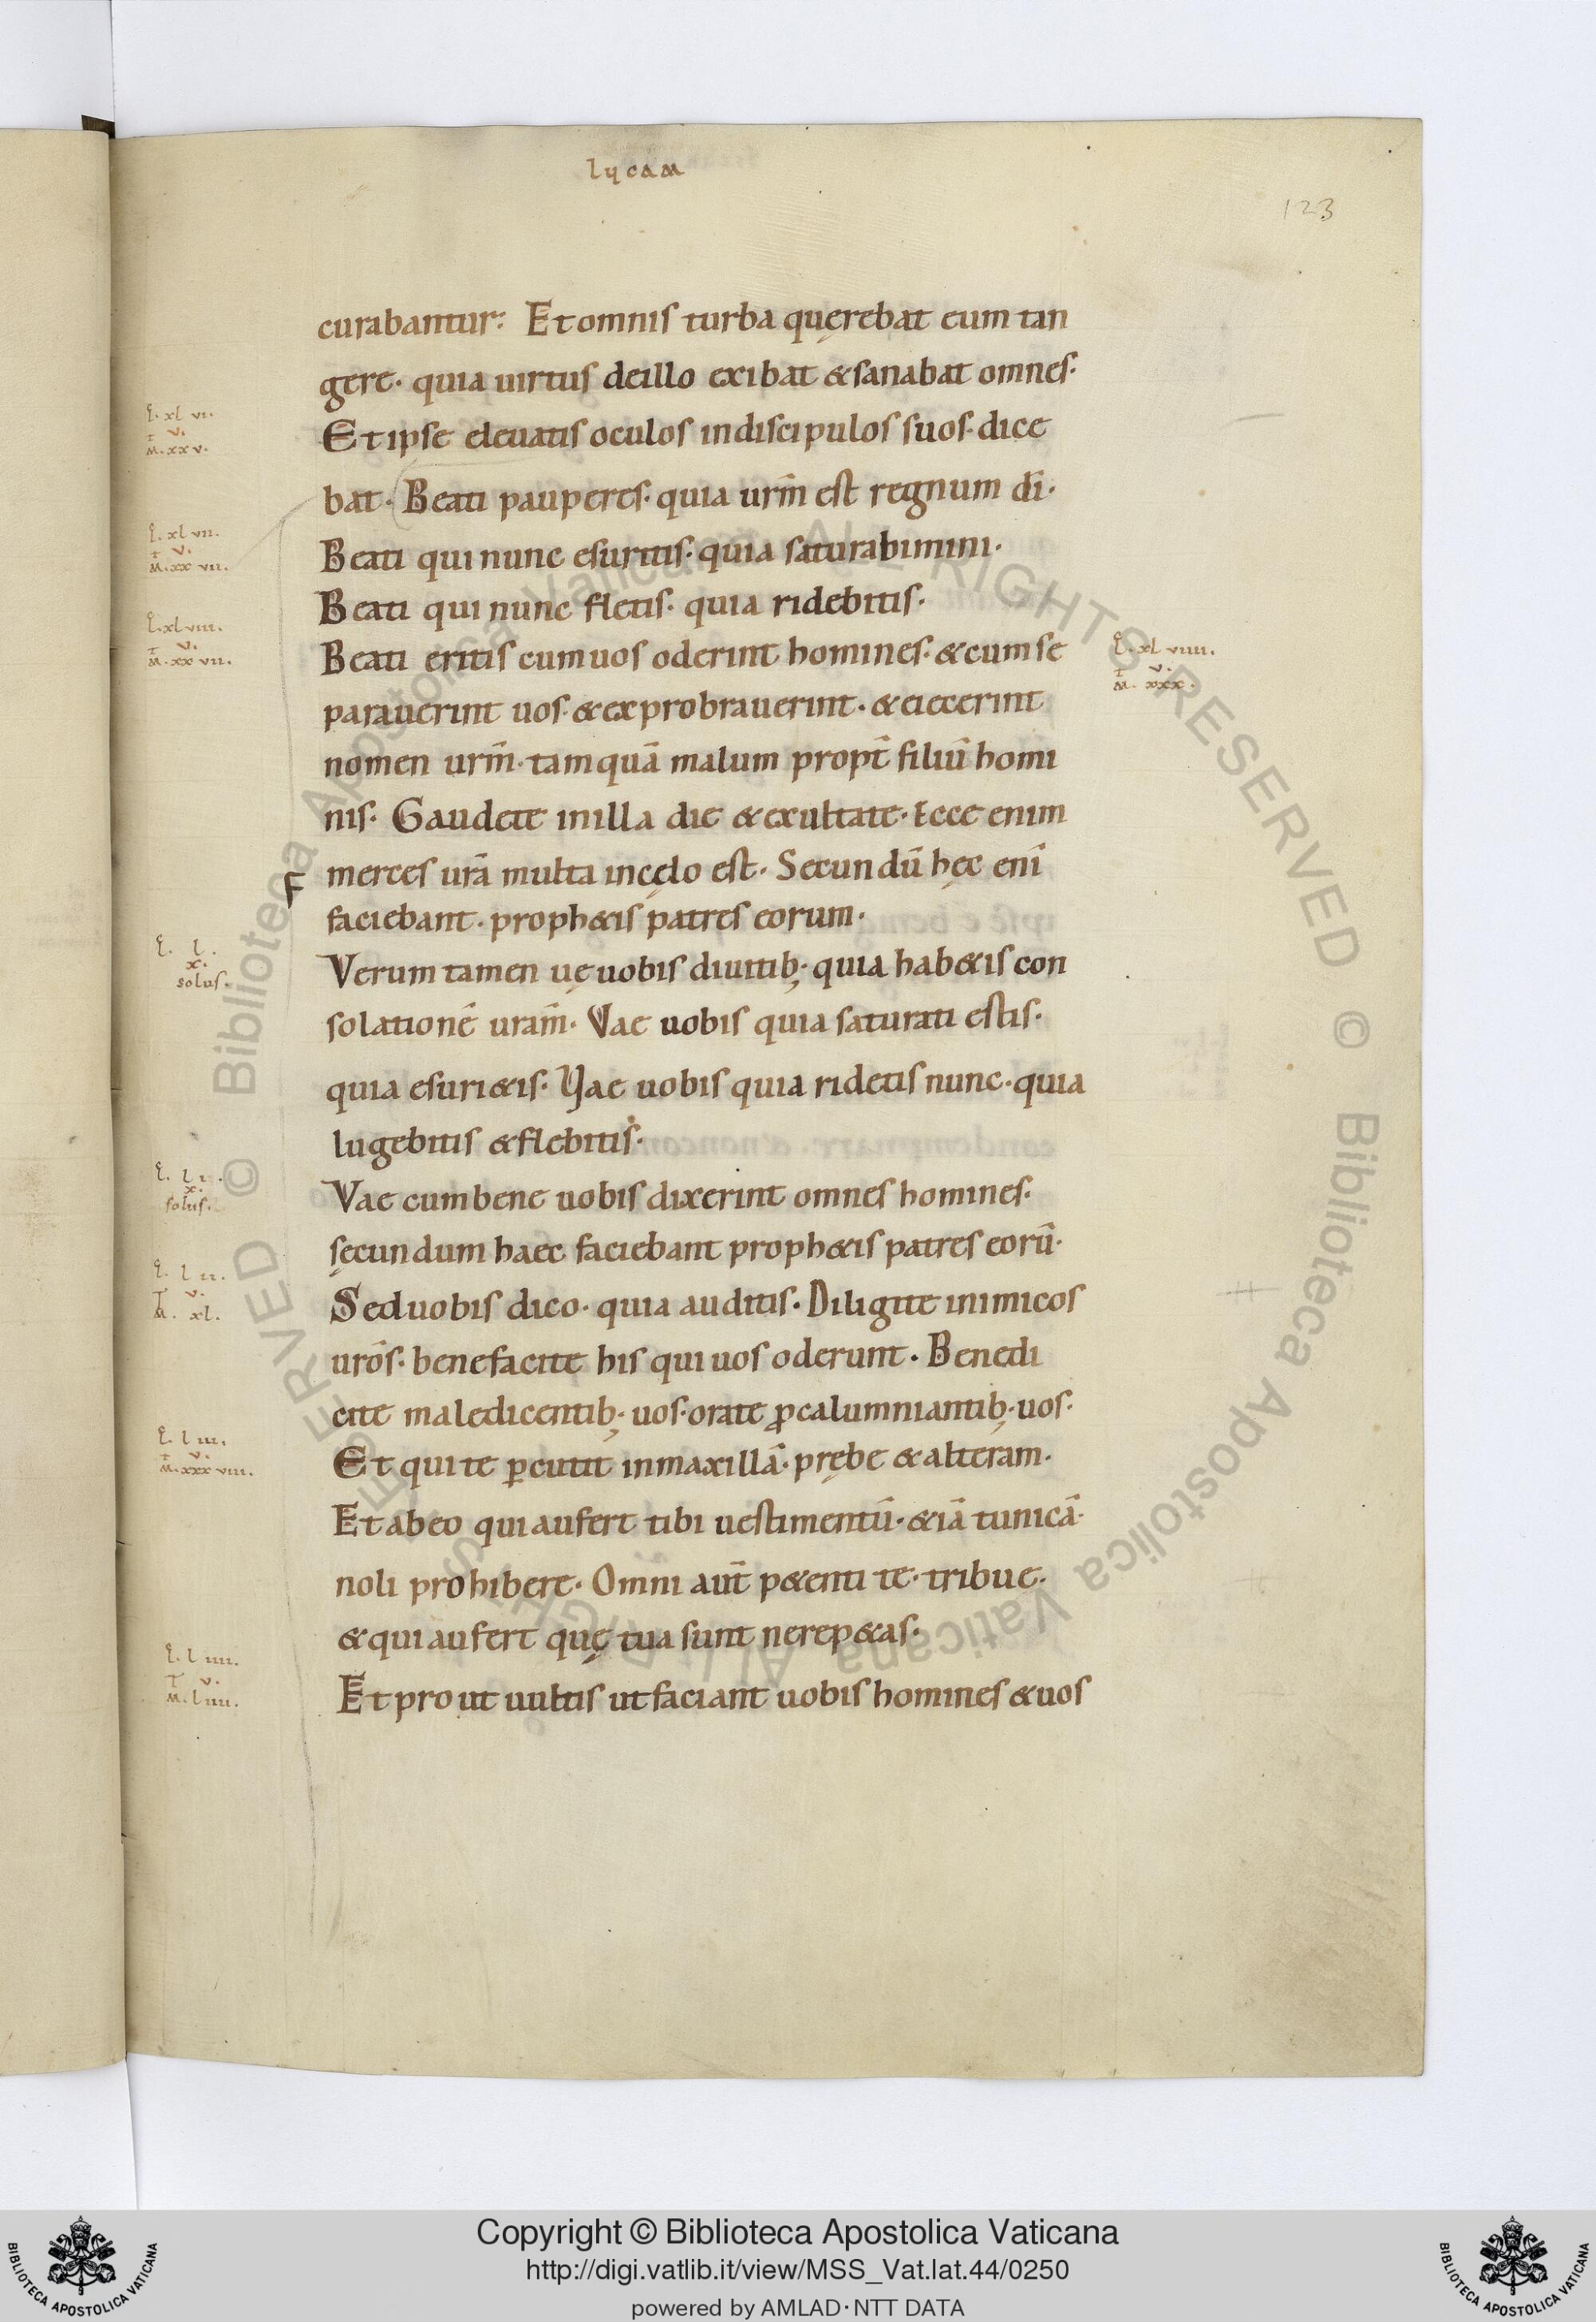 lycam
123
curabantur: Et omnis turba quęrebat eum tan
gere· quia uirtus de illo exibat & sanabat omnes·
Et ipse eleuatis oculos in discipulos suos· dice
bat· Beati pauperes· quia urm̄ est regnum dī·
Beati qui nunc esuritis· quia saturabimini·
Beati qui nunc fletis· quia ridebitis·
Beati eritis cum uos oderint homines· & cum se
parauerint uos· & exprobrauerint· & eiecerint
nomen urm̄· tamquā malum propt̄ filiū homi
nis· Gaudete in illa die & exultate· Ecce enim
merces urā multa in cęlo est· Secundū hęc enī
F
faciebant· proph&is patres eorum·
Verum tamen uę uobis diuitib;· quia hab&is con
solationē urām· Vae uobis quia saturati estis·
quia esuri&is· Vae uobis quia ridetis nunc· quia
lugebitis & flebitis·
Vae cum bene uobis dixerint omnes homines·
sęcundum haec faciebant proph&is patres eorū·
Sed uobis dico· quia auditis· Diligite inimicos
urōs· benefacite his qui uos oderunt· Benedi
cite maledicentib;· uos· orate ꝓ calumniantib;· uos·
Et qui te ꝑcutit in maxillā· prębe & alteram·
Et ab eo qui aufert tibi uestimentū· &iā tunicā·
noli prohibere· Omni aut̄ p&enti te· tribue·
& qui aufert quę tua sunt ne rep&as·
Et prout uultis ut faciant uobis homines & uos
L. xl vi.
v.
M. xx v.
L. xl vii.
v.
M. xx vii.
L. xl viii.
v.
M. xx vii.
L. xl viiii.
v.
M. xxx.
L. l.
x.
solus.
L. l i.
x.
solus.
L. l ii.
v.
M. xl.
L. l iii.
v.
M. xxx viii.
L. l iiii.
v.
M. l iiii.
© Biblioteca Apostolica Vaticana ALL RIGHTS RESERVED © Biblioteca Apostolica Vaticana ALL RIGHTS RESERVED
Copyright © Biblioteca Apostolica Vaticana
http://digi.vatlib.it/view/MSS_Vat.lat.44/0250
powered by AMLAD·NTT DATA
BIBLIOTECA APOSTOLICA VATICANA
BIBLIOTECA APOSTOLICA VATICANA